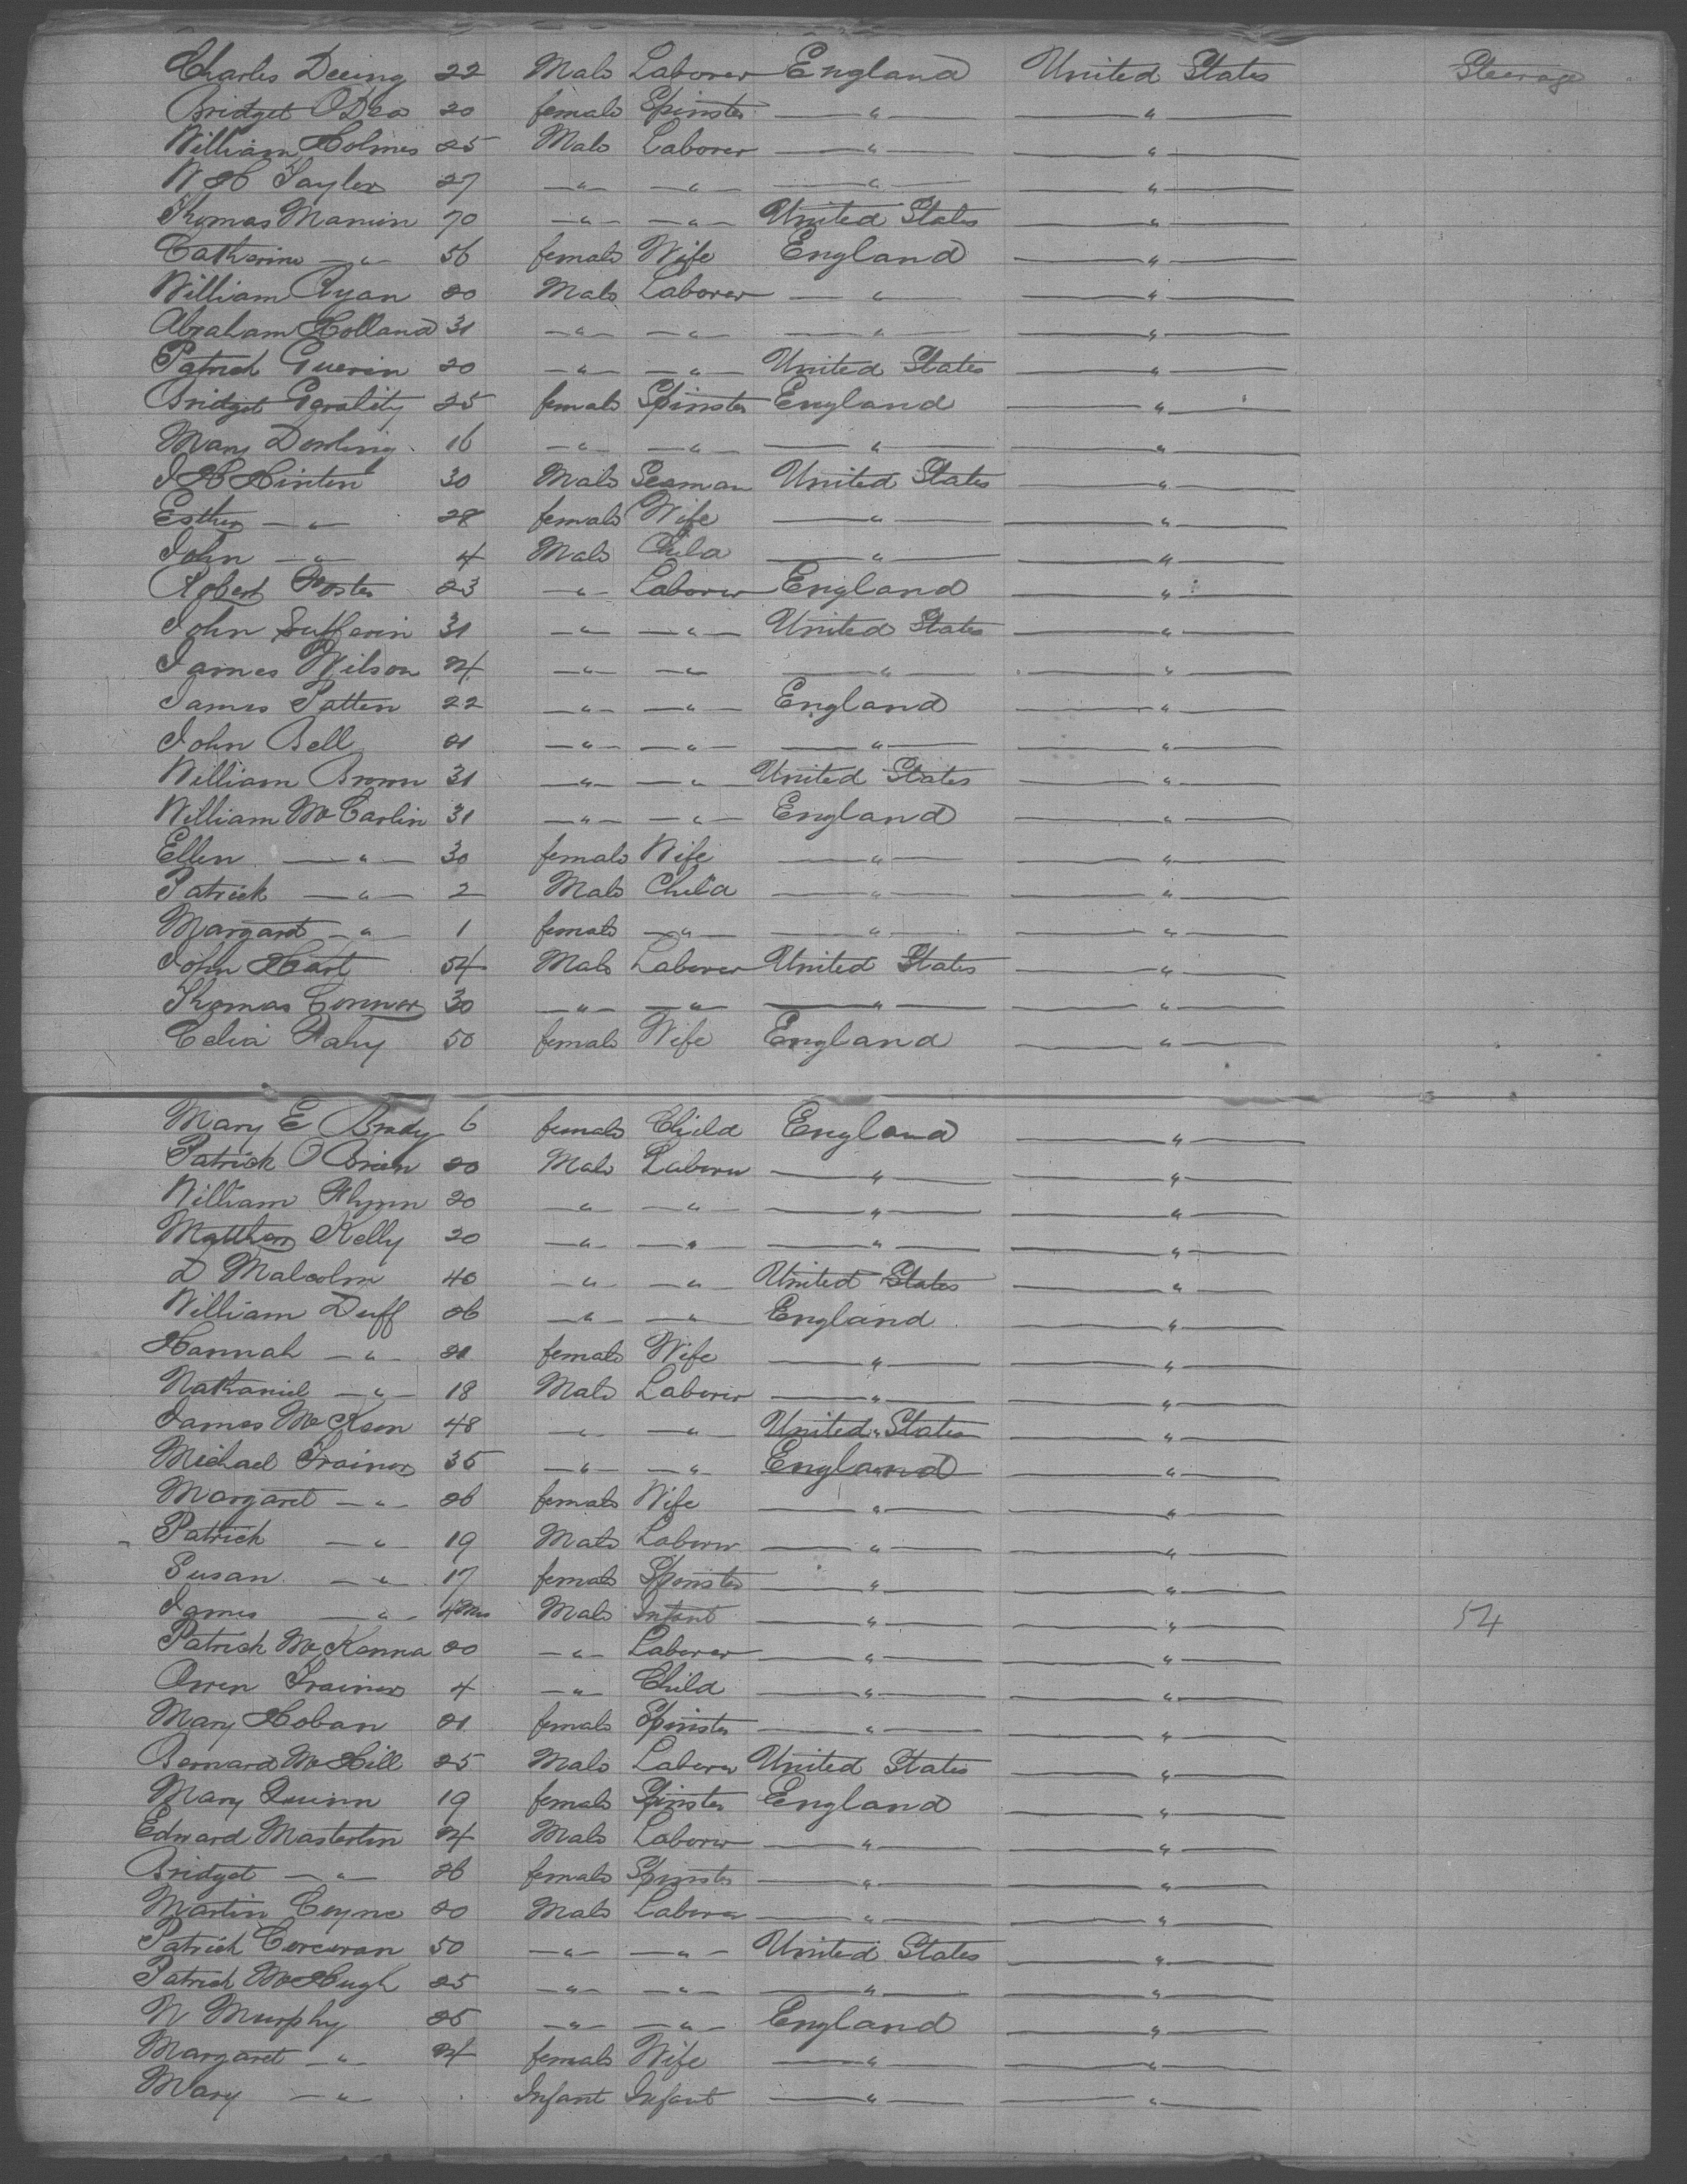 Charles Deeing 22 Male Laborer England United States Steerage
Bridget O'Dea 20 female Spinster — " — — " —
William Holmes 25 Male Laborer — " — — " —
W H Taylor 27 — " — — " — — " — — " —
Thomas Manion 70 — " — — " — United States — " —
Catherine — " — 56 female Wife England — " —
William Ryan 20 Male Laborer — " — — " —
Abraham Holland 31 — " — — " — — " — — " —
Patrick Guerin 20 — " — — " — United States — " —
Bridget Garality 25 female Spinster England — " —
Mary Dowling 16 — " — — " — — " — — " —
J H Hinten 30 Male Seaman United States — " —
Esther — " — 28 female Wife — " — — " —
John — " — 4 Male Child — " — — " —
Robert Foster 23 — " — Laborer England — " —
John Sufferin 31 — " — — " — United States — " —
James Wilson 24 — " — — " — — " — — " —
James Patten 22 — " — — " — England — " —
John Bell 21 — " — — " — — " — — " —
William Brown 31 — " — — " — United States — " —
William McCarlin 31 — " — — " — England — " —
Ellen — " — 30 female Wife — " — — " —
Patrick — " — 2 Male Child — " — — " —
Margaret — " — 1 female — " — — " — — " —
John Hart 54 Male Laborer United States — " —
Thomas Connor 30 — " — — " — — " — — " —
Celia Fahy 50 female Wife England — " —
Mary E Brady 6 female Child England — " —
Patrick O Brien 20 Male Laborer — " — — " —
William Flynn 20 — " — — " — — " — — " —
Matthew Kelly 20 — " — — " — — " — — " —
D Malcolm 40 — " — — " — United States — " —
William Duff 26 — " — — " — England — " —
Hannah — " — 21 female Wife — " — — " —
Nathaniel — " — 18 Male Laborer — " — — " —
James McKeon 48 — " — — " — United States — " —
Michael Trainor 35 — " — — " — England — " —
Margaret — " — 26 female Wife — " — — " —
Patrick — " — 19 Male Laborer — " — — " —
Susan — " — 17 female Spinster — " — — " —
James — " — 4 Mos Male Infant — " — — " — 54
Patrick McKenna 20 — " — Laborer — " — — " —
Owen Trainor 4 — " — Child — " — — " —
Mary Hoban 21 female Spinster — " — — " —
Bernard McHill 25 Male Laborer United States — " —
Mary Quinn 19 female Spinster England — " —
Edward Masterten 24 Male Laborer — " — — " —
Bridget — " — 26 female Spinster — " — — " —
Martin Coyne 20 Male Laborer — " — — " —
Patrick Corcoran 50 — " — — " — United States — " —
Patrick McHugh 25 — " — — " — — " — — " —
W Murphy 25 — " — — " — England — " —
Margaret — " — 24 female Wife — " — — " —
Mary — " — Infant Infant — " — — " —